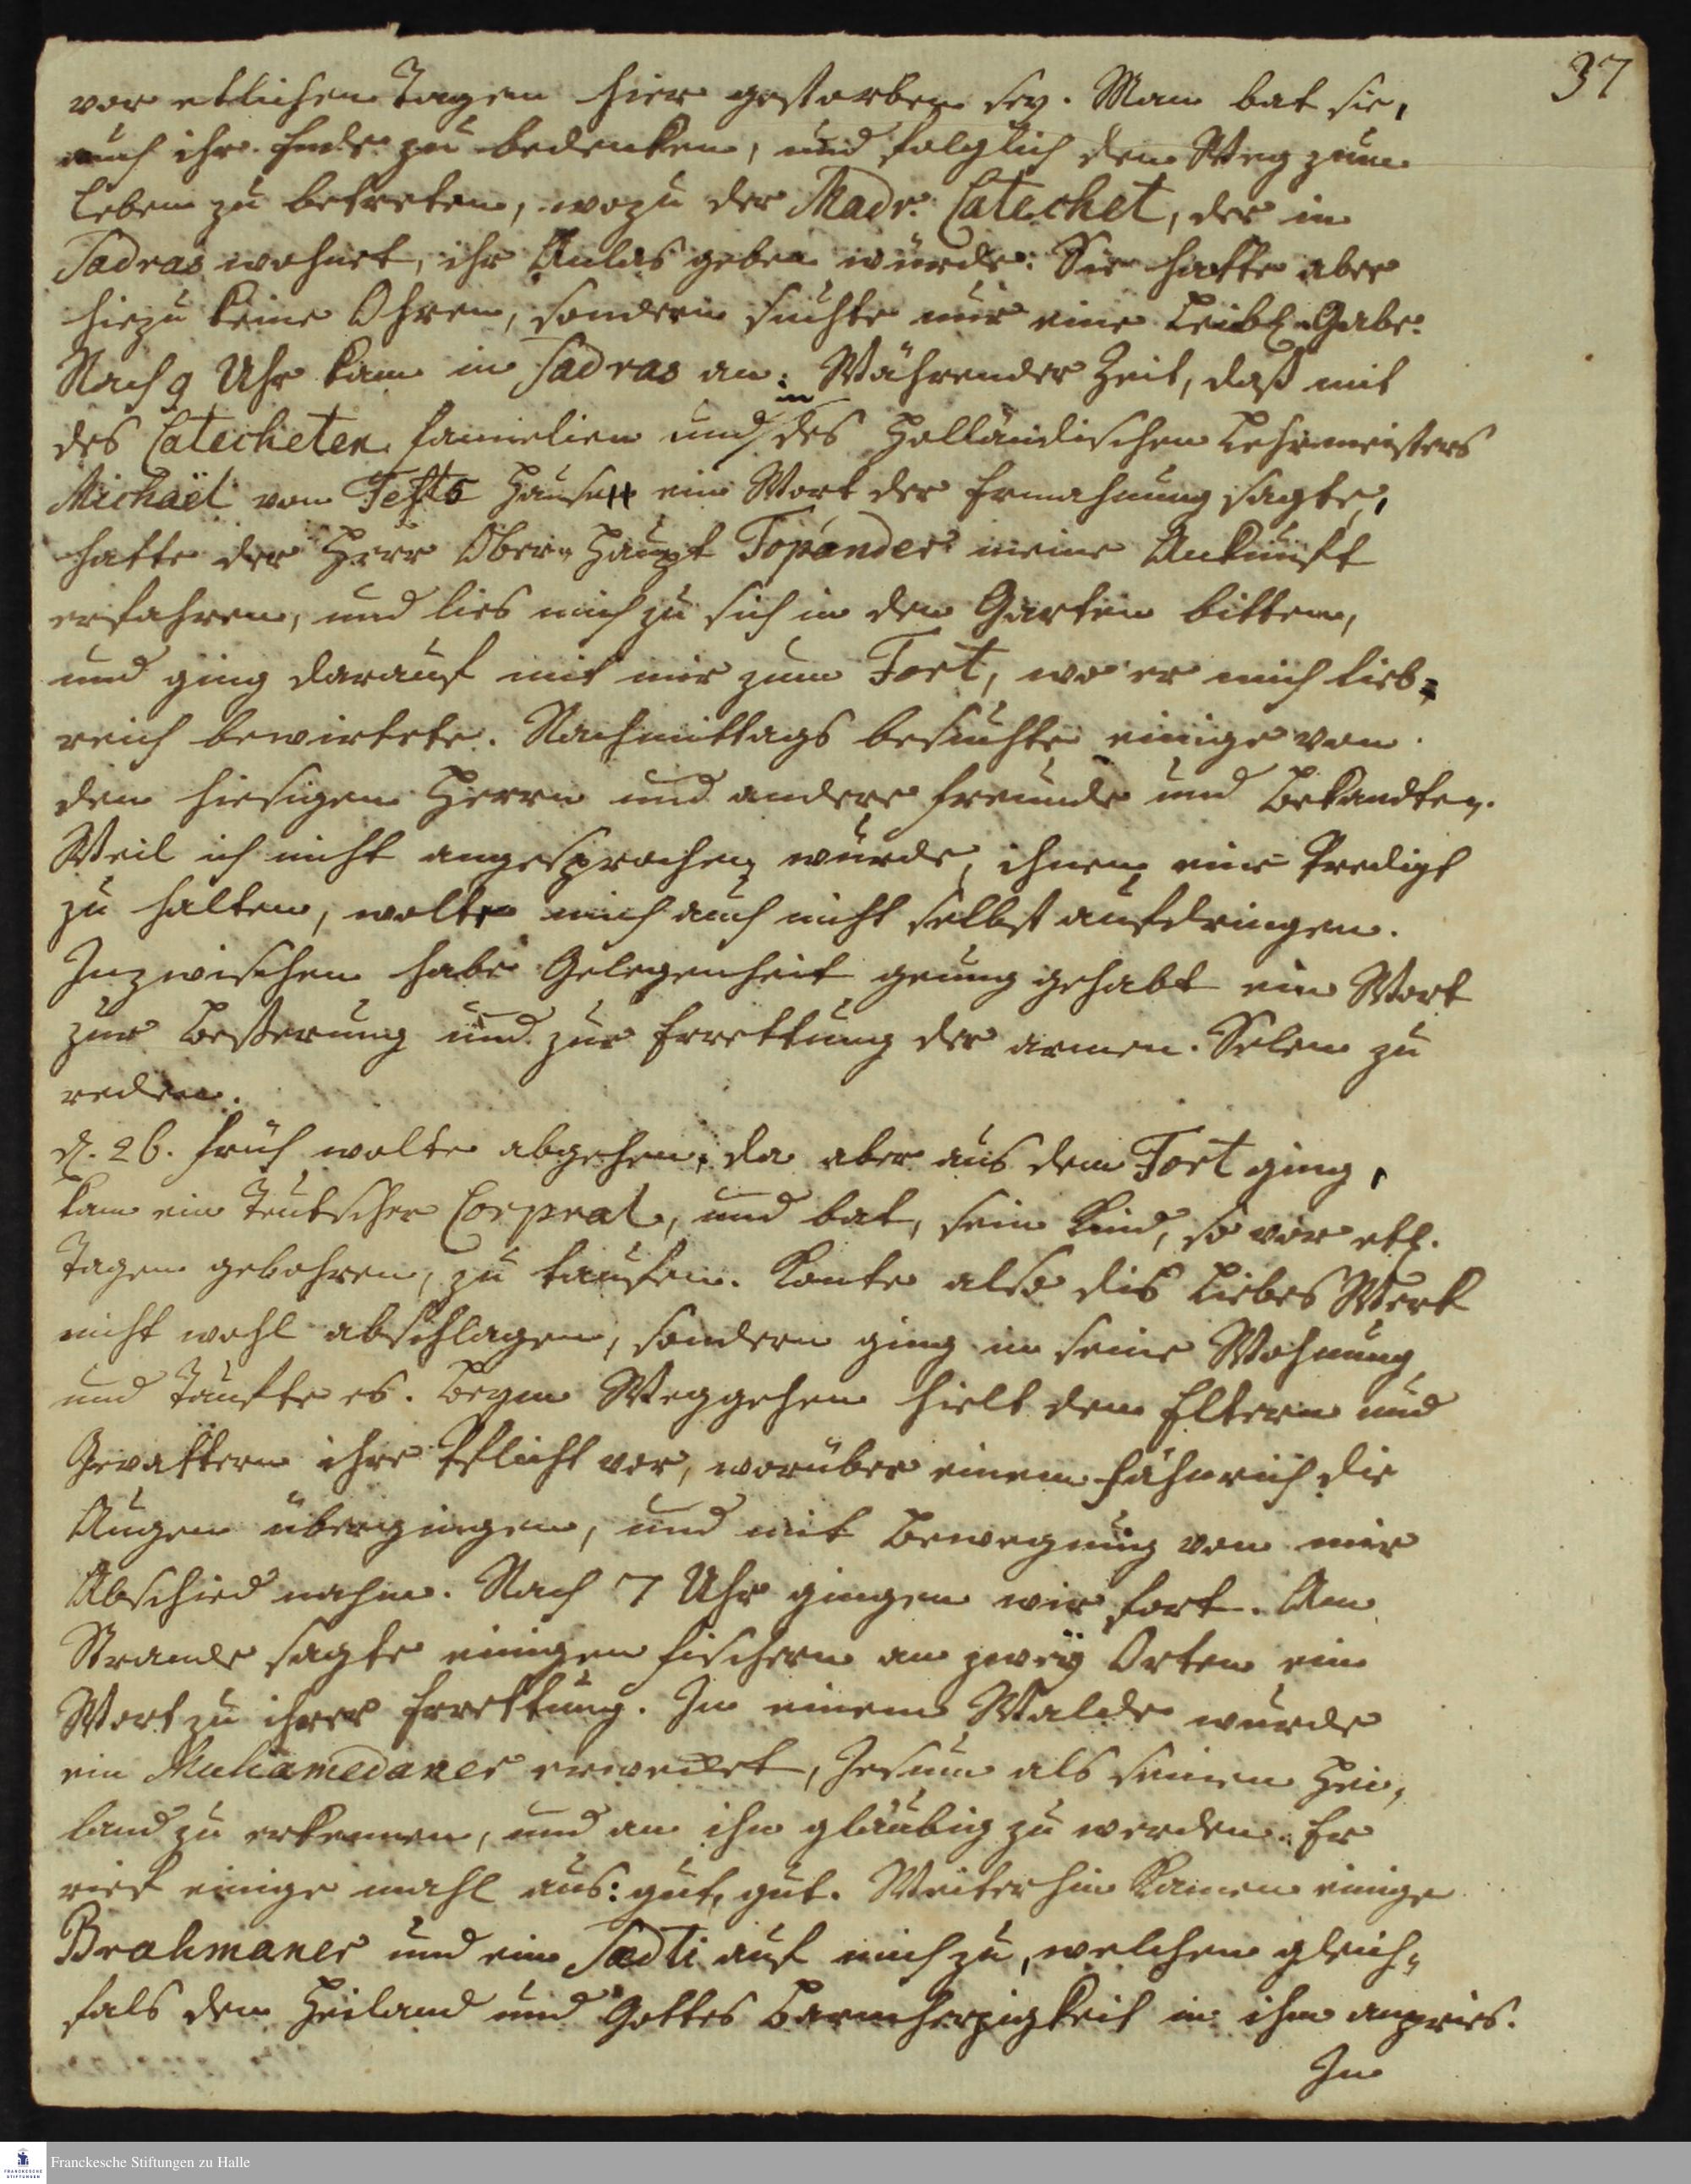 37
vor etlichen Tagen hier gestorben sey. Man bat sie,
auch ihr Ende zu bedencken, und folglich den Weg zum
Leben zu betreten, wozu der Madr. Catechet, der in
Sadras wohnet, ihr Anlas geben würde. Sie hatte aber
hiezu keine Ohren, sondern suchte nur eine Leibl. Gabe.
Nach 9 Uhr kam in Sadras an. Währender Zeit, daß mit
des Catecheten familien und in des Holländischen Lehrmeisters
Michaël von Hause ein Wort der Ermahnung sagte,
hatte der Herr Ober-Haupt Topander meine Ankunft
erfahren, und lies mich zu sich in den Garten bitten,
und ging darauf mit mir zum Fort, wo er mich lieb=
reich bewirtete. Nachmittags besuchte einige von
den hiesigen Herrn und andere Freunde und Bekandten.
Weil ich nicht angesprochen wurde, ihnen eine Predigt
zu halten, wolte mich auch nicht selbst aufdringen.
Inzwischen habe Gelegenheit genung gehabt ein Wort
zur Besserung und zur Errettung der armen Selen zu
reden.
d. 26. früh wolte abgehen, da aber aus dem Fort ging,
kam ein Teutscher Corpral, und bat, sein Kind, so vor etl.
Tagen gebohren, zu taufen. Konte also dis Liebes Werk
nicht wohl abschlagen, sondern ging in seine Wohnung
und täufte es. Beym Weggehen hielt den Eltern und
Gevattern ihre Pflicht vor, worüber einem Fähnrich die
Augen übergingen, und mit Bewegung von mir
Abschied nahm. Nach 7 Uhr gingen wir fort. Am
Strande sagte einigen Fischern an zwey Orten ein
Wort zu ihrer Errettung. In einem Walde wurde
ein Muhamedaner erwecket, Jesum als seinen Hei-
land zu erkennen, und an ihn gläubig zu werden. Er
rief einige mahl aus: gut, gut. Weiterhin kamen einige
Brahmaner und ein Sadti auf mich zu, welchen gleich-
fals den Heiland und Gottes Barmherzigkeit in ihm anpries.
In
Franckesche Stiftungen zu Halle